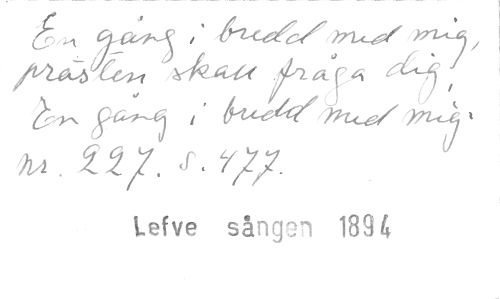 En gång i bredd med mig,
prästen skall fråga dig,
En gång i bredd med mig.
nr. 227. s. 477.
Lefve sången 1894